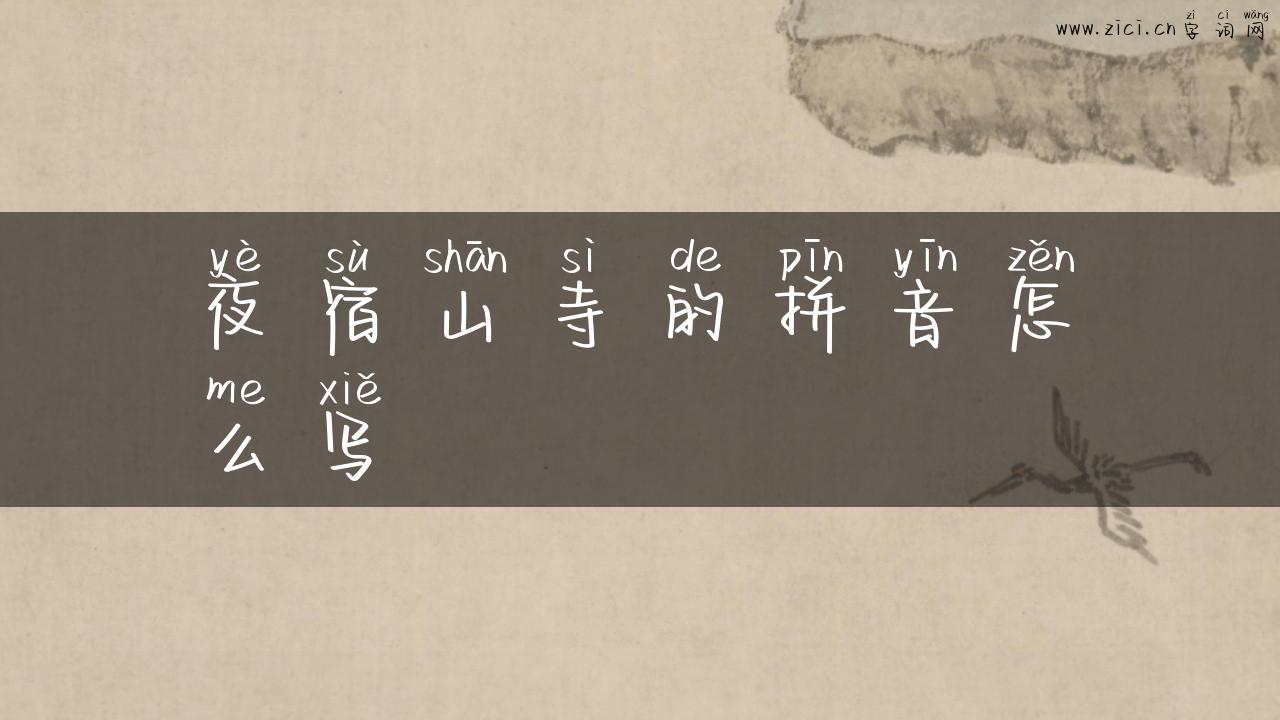 zì cí wǎng
www.zici.cn 字词网
yè sù shān sì de pīn yīn zěn
夜宿山寺的拼音怎
me xiě
么写